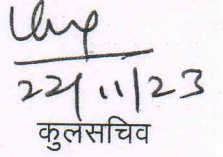 22/11/23
कुलसचिव